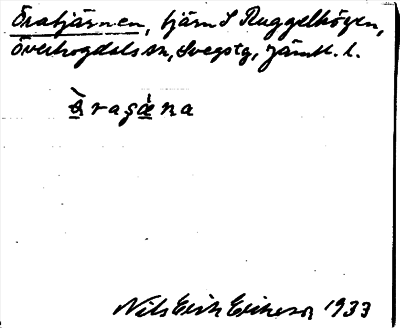 Öratjärnen, tjärn S Ruggelhögen,
Överhogdals sn, Svegstg, Jämtl. l.
Nils Erik Eriksson 1933